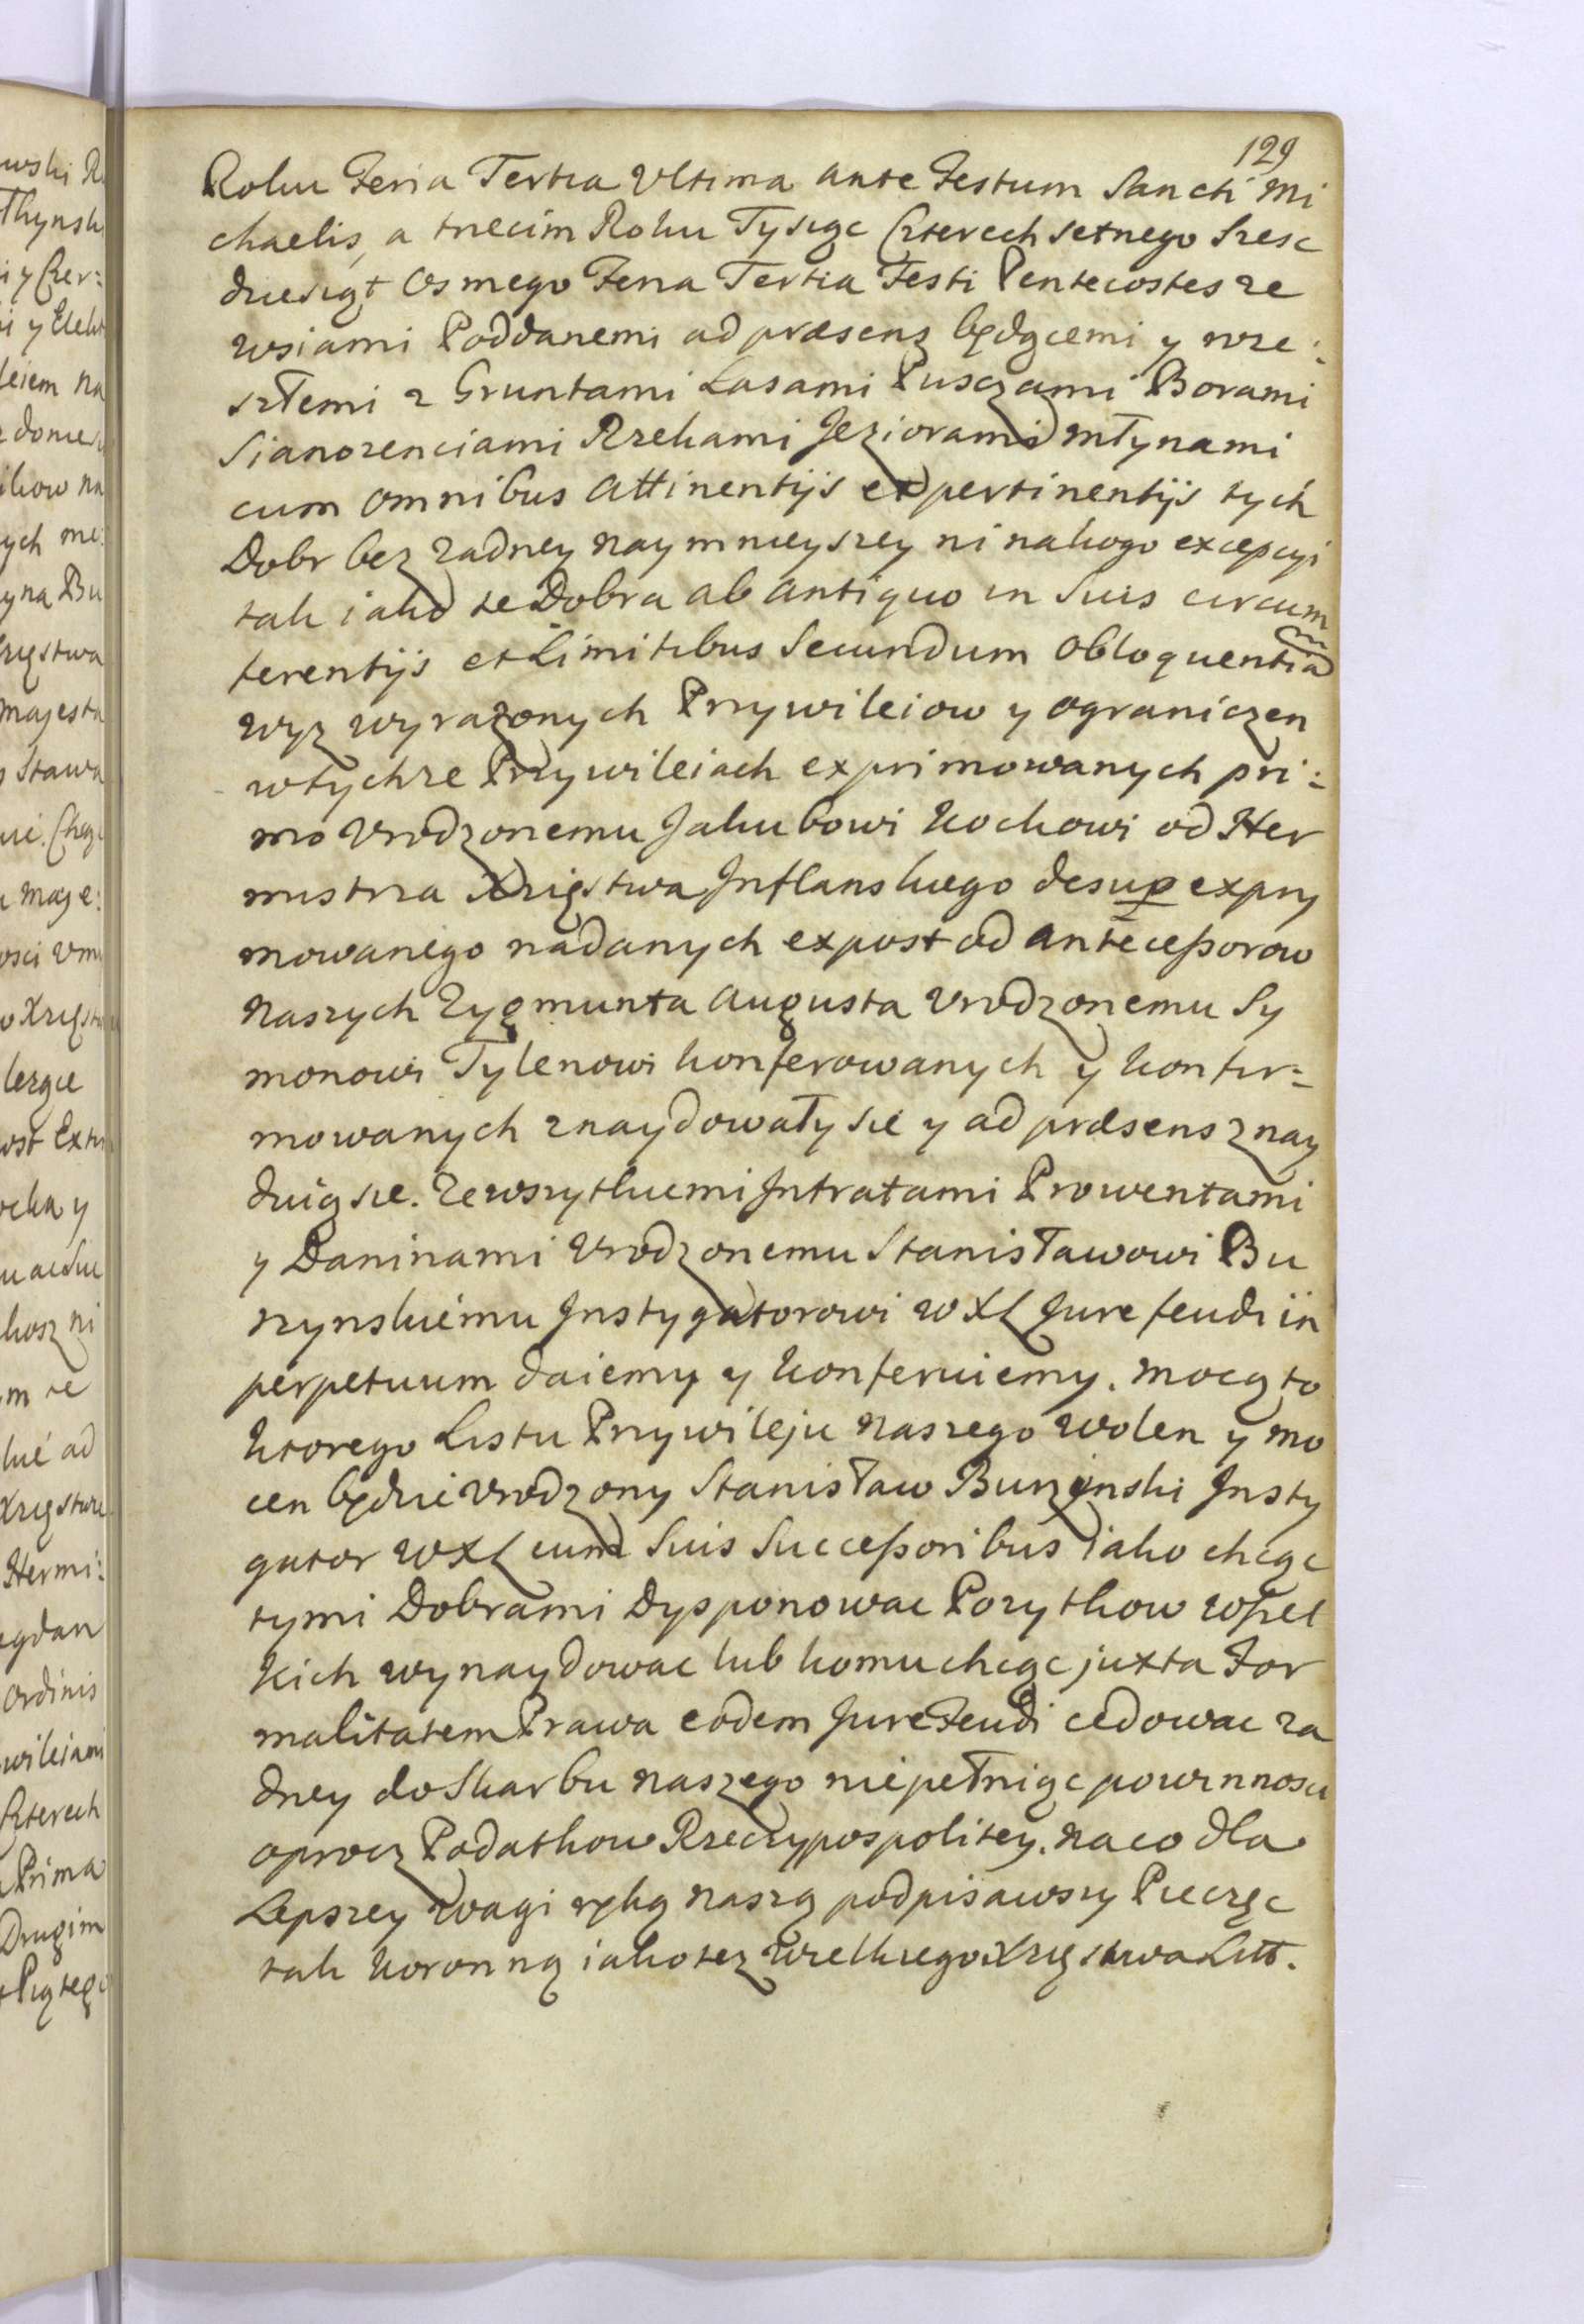 129
Roku Feria Tertia Vltima ante Festum Sancti Mi
chaelis, a trzecim Roku Tysiąc Czterechsetnego Szesc
dziesiąt Osmego Feria Tertia Festi Pentecostes ze
wsiami Poddanemi ad præsens będącemi y prze:
szłemi z Gruntami Lasami Pusczami Borami
Sianozenciami Rzekami Jeziorami Młynami
cum omnibus attinentijs et pertinentijs tych
Dobr bez zadney naymnieyszey ni nakogo excepcyi
tak iako te Dobra ab antiquo in Suis circum
ferentijs et Limitibus Secundum obloquentiam
wyz wyrazonych Przywileiow y ograniczen
wtychze Przywileiach exprimowanych pri:
mo Vrodzonemu Jakubowi Kochowi od Her
mistrza Xzięstwa Inflanskiego desup expry
mowanego nadanych expost od antecessorow
Naszych Zygmunta Augusta Vrodzonemu Sy
monowi Tylenowi konferowanych y konfir=
mowanych znaydowały sie y ad præsens znay
duią sie. Zewszytkiemi Intratami Prowentami
y Daninami Vrodzonemu Stanisławowi Bu
rzynskiemu Instygatorowi WXL Jure feudi in
perpetuum daiemy y Konferuiemy. Mocą to
ktorego Listu Przywileju Naszego wolen y mo
cen będzie Vrodzony Stanisław Burzynski Insty
gator WXL cum Suis Successoribus iako chcąc
tymi Dobrami Dysponowac Pozytkow wszel
kich wynaydowac lub komu chcąc juxta For
malitatem Prawa eodem Jure Feudi cedowac za
dney do Skarbu naszego niepełniąc powinnosci
oprocz Podatkow Rzeczypospolitey. Naco dla
Lepszey Wagi ręką naszą podpisawszy Pieczęc
tak koronną iakotez Wielkiego Xzięstwa Litt.